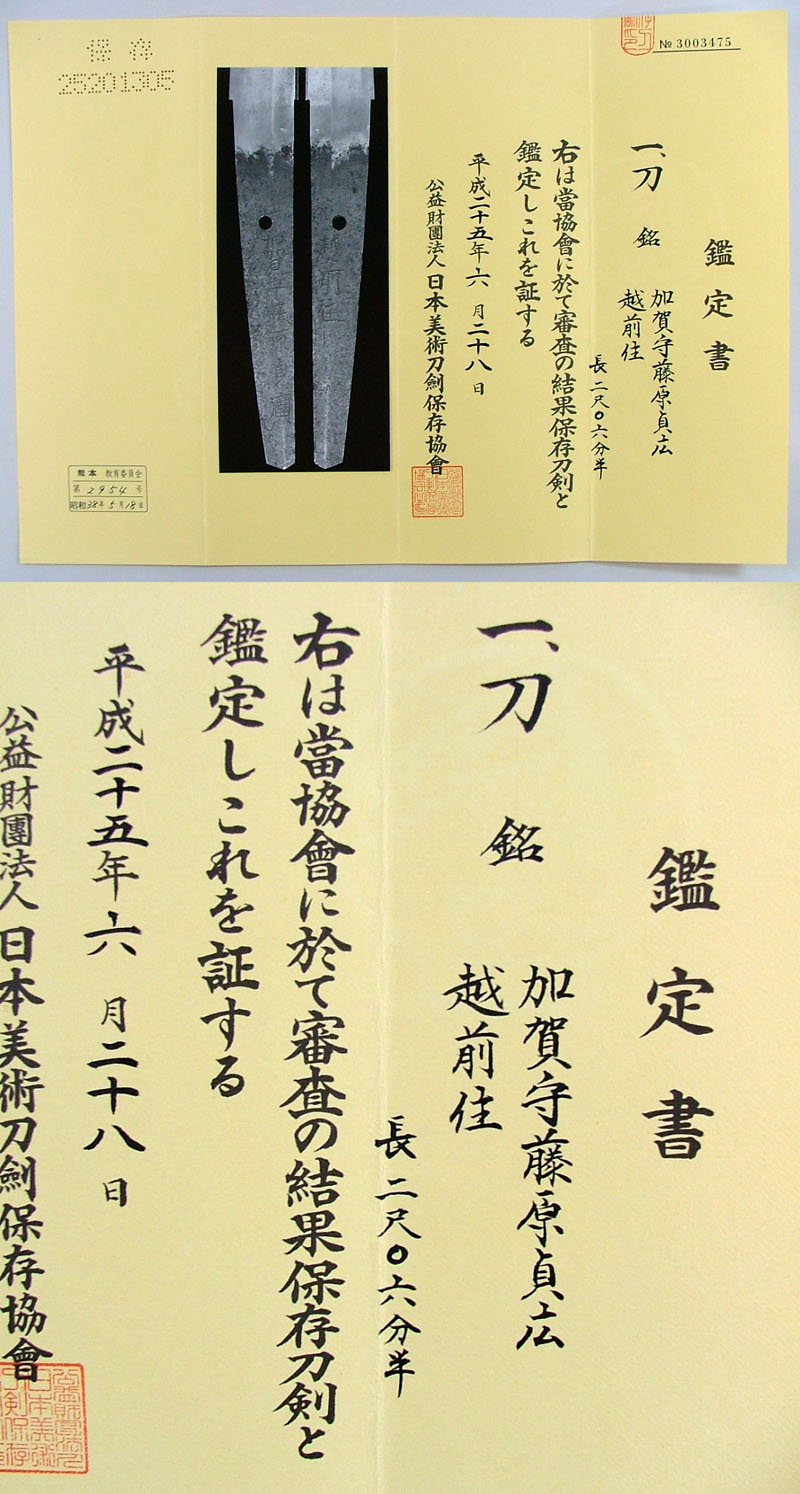 № 3003475
鑑定書
一、刀 銘 加賀守藤原貞広
越前住
長 二尺〇六分半
右は當協會に於て審査の結果保存刀剣と
鑑定しこれを証する
平成二十五年六月二十八日
公益財團法人日本美術刀劍保存協會
保存
25201305
熊本 教育委員会
第 2954 号
昭和38年5月18日
鑑定書
一、刀 銘 加賀守藤原貞広
越前住
長 二尺〇六分半
右は當協會に於て審査の結果保存刀剣と
鑑定しこれを証する
平成二十五年六月二十八日
公益財團法人日本美術刀劍保存協會